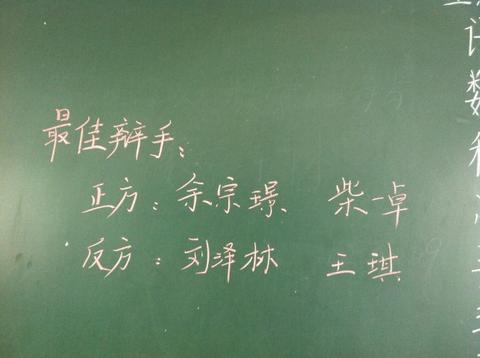 最佳辩手：
正方：余宗璟、 柴一卓
反方：刘泽林 王琪
计数